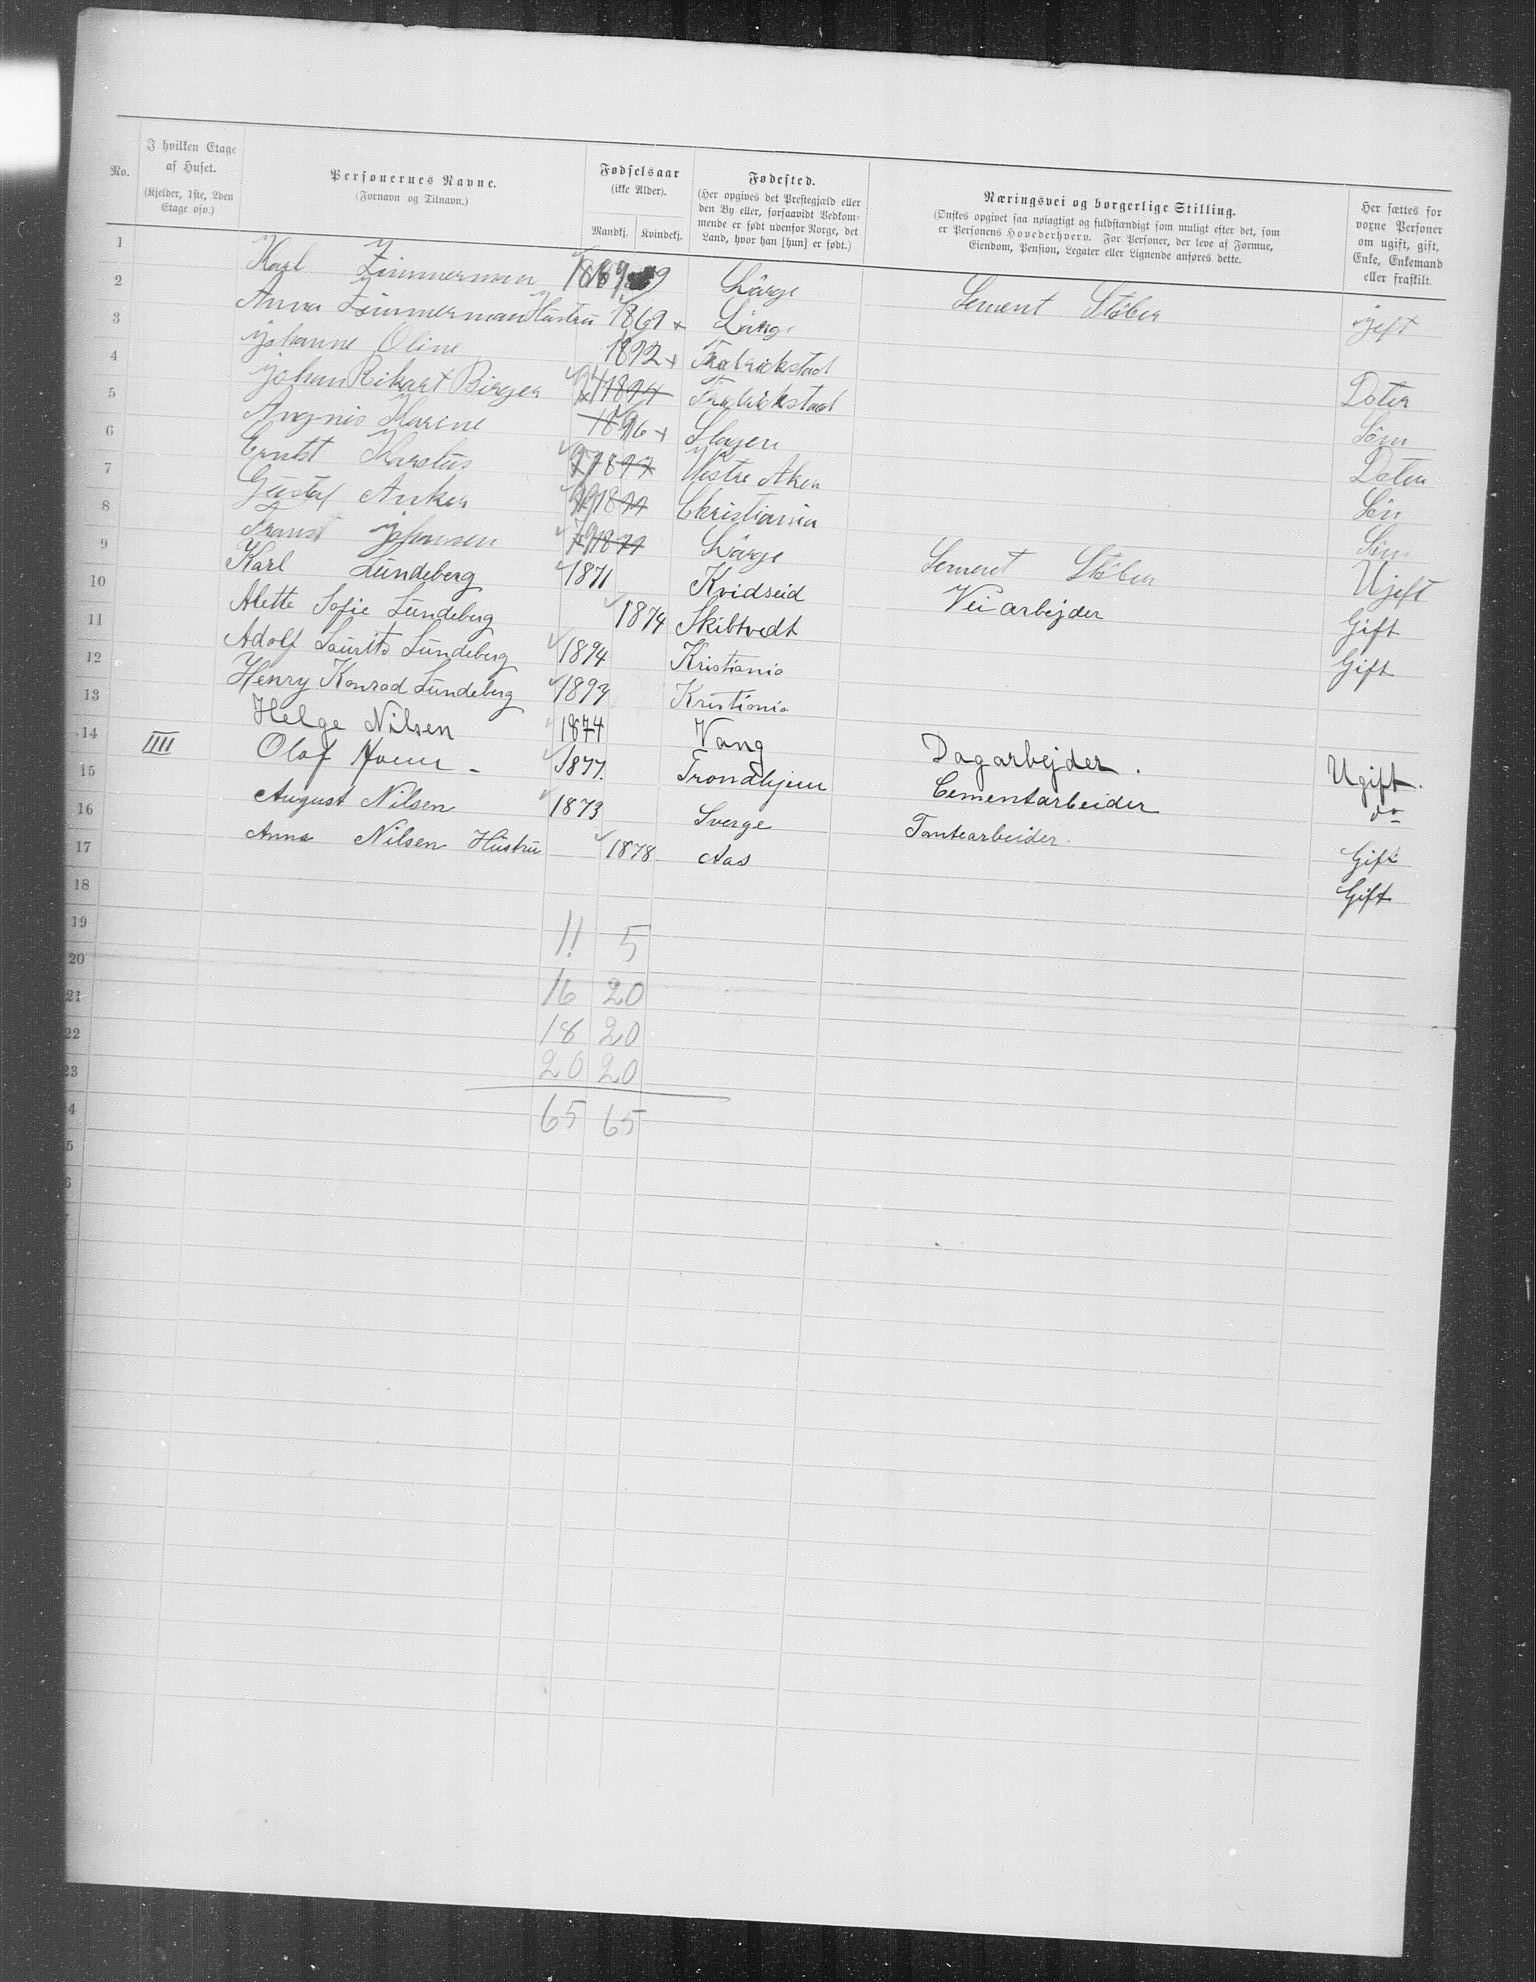 No. | I hvilken Etage af Huset. (Kjelder, 1ste, 2den Etage osv.) | Personernes Navne. (Fornavn og Tilnavn.) | Fødselsaar (ikke Alder). Mandkj. Kvindekj. | Fødested. (Her opgives det Prestegjæld eller den By eller, forsaavidt Vedkommende er født udenfor Norge, det Land, hvor han [hun] er født.) | Næringsvei og borgerlige Stilling. (Ønskes opgivet saa nøiagtigt og fuldstændigt som muligt efter det, som er Personens Hovederhverv. For Personer, der leve af Formue, Eiendom, Pension, Legater eller Lignende anføres dette. | Her sættes for voxne Personer om ugift, gift, Enke, Enkemand eller fraskilt.
1 Karl Zimmerman 1869 Svärge Sement Støber gjeft
2 Anna Zimmerman Hustru 1869 x Svärge
3 Johanne Oline 1892 x Fredrickstad Doter
4 Johan Rikart Birger 94 1894 Fredrickstad Sön
5 Angnis Marine 1896 x Slagen Doter
6 Ernst Karolus 97 1897 Vestre Aker Sön
7 Gustaf Anker 99 1899 Christiania Sön
8 Franst Johansen 79 1879 Svärge Sement Støber Ujeft
9 Karl Lundeberg 1871 Kvidseid Veiarbejder Gift
10 Alette Sofie Lundeberg 1874 Skibtvedt Gift
11 Adolf Laurits Lundeberg 1894 Kristiania
12 Henry Konrad Lundeberg 1897 Kristiania
13 Helge Nilsen 1874 Vang Dagarbejder. Ugift.
14 IIII Olaf 1877. Trondhjem Cementarbeider do
15 August Nilsen 1873 Sverge Tomtearbeider. Gift
16 Anna Nilsen Hustru 1878 Aas Gift
17
18
19 11 5
20
21 16 20
22 18 20
23 20 20
4 65 65
5
6